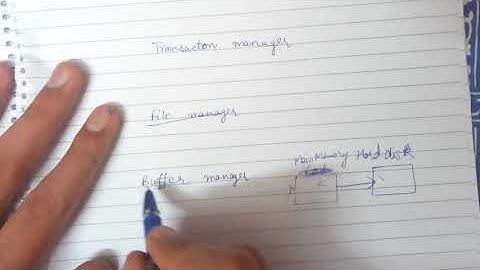 Transacton manager
File manager
Main Memory Hard disk
Buffer manager